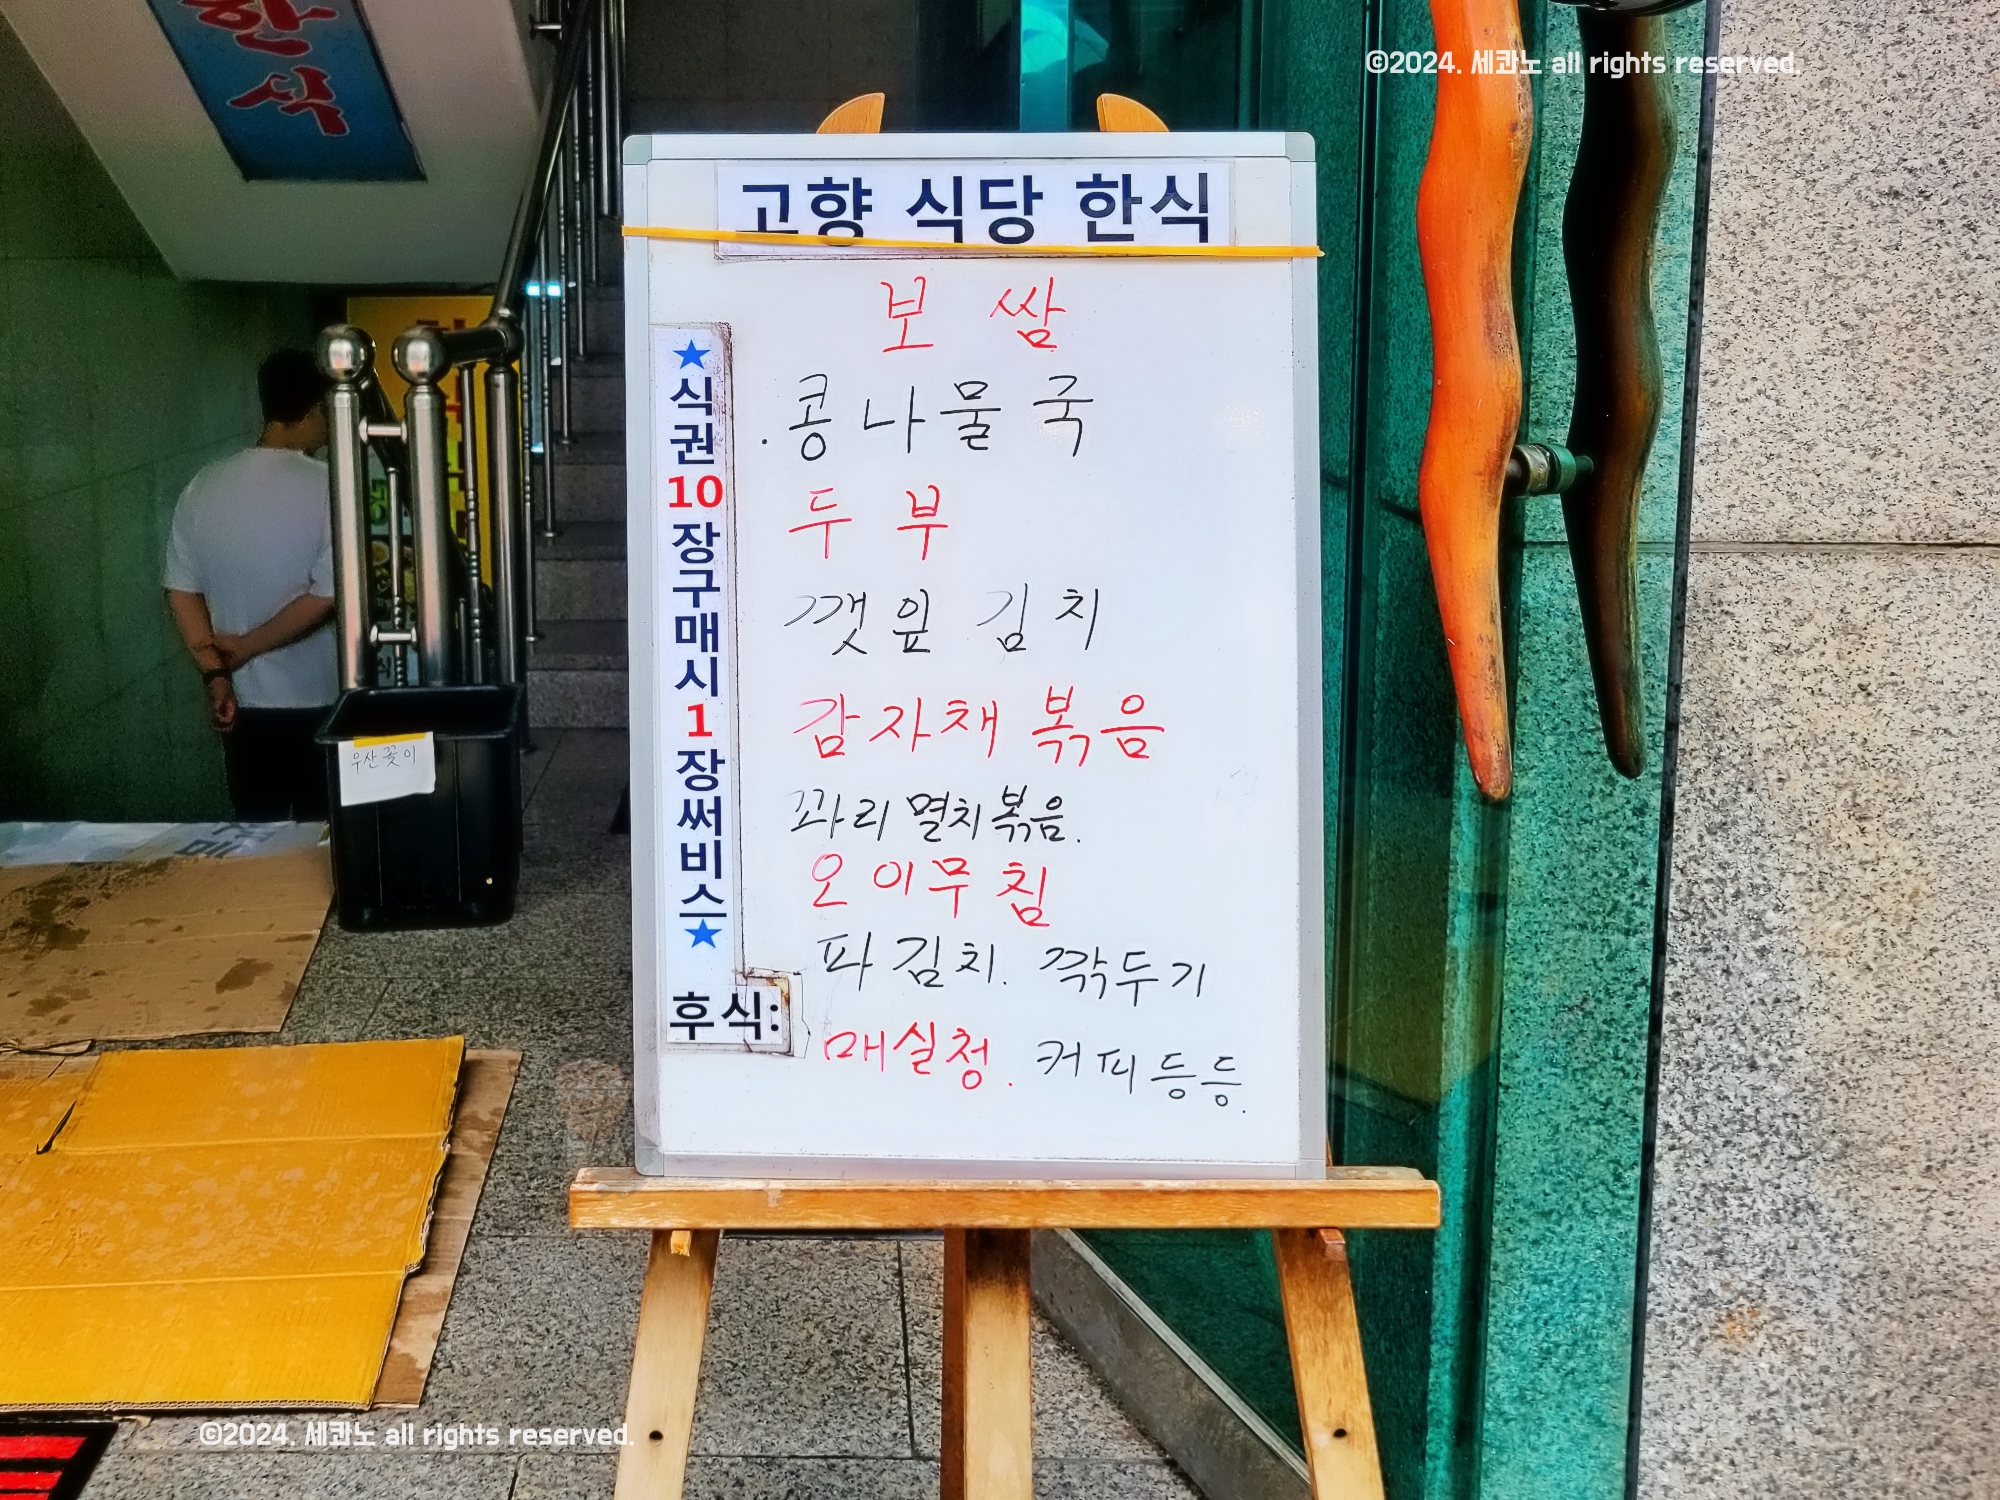 ©2024. 세콴노 all rights reserved.
한식
고향 식당 한식
보 쌈
. 콩나물국
두 부
깻잎 김치
감자채 볶음
꽈리 멸치볶음.
오이무침
파김치. 깍두기
매실청. 커피 등등.
★식권10장구매시1장써비스★
후식:
우산꽂이
©2024. 세콴노 all rights reserved.